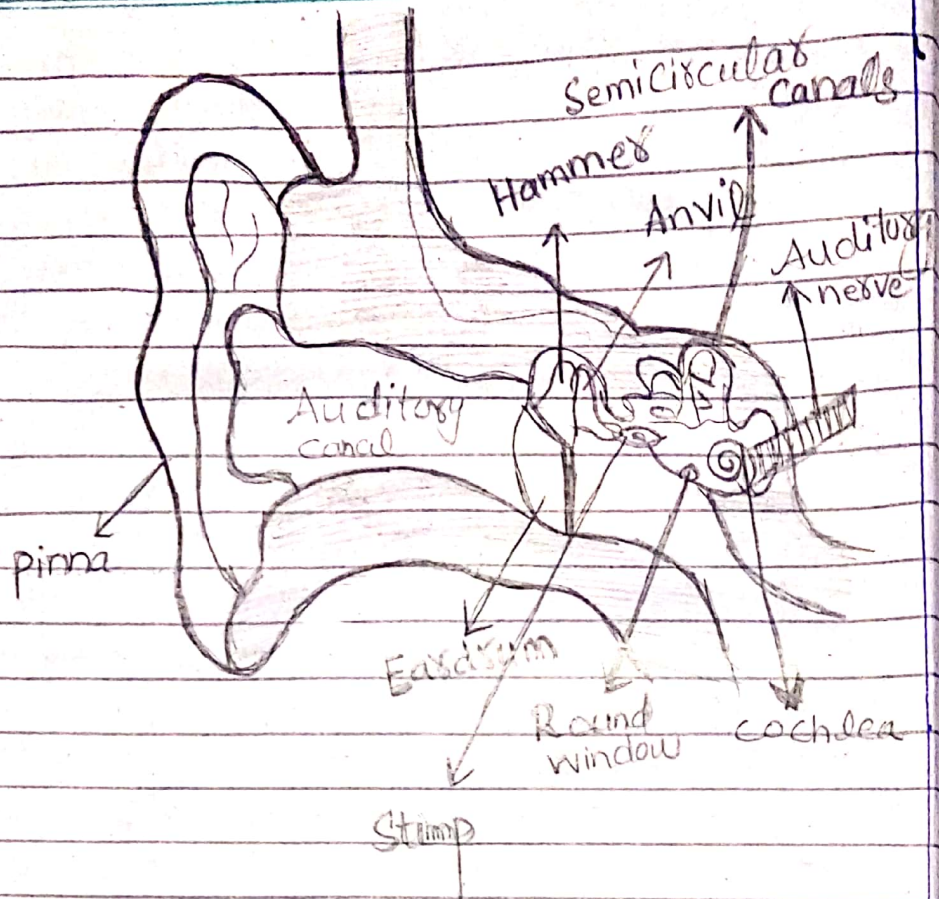 Semicircular
canals
Hammer
Anvil
Auditory
nerve
Auditory
canal
pinna
Eardrum
Round
window
cochlea